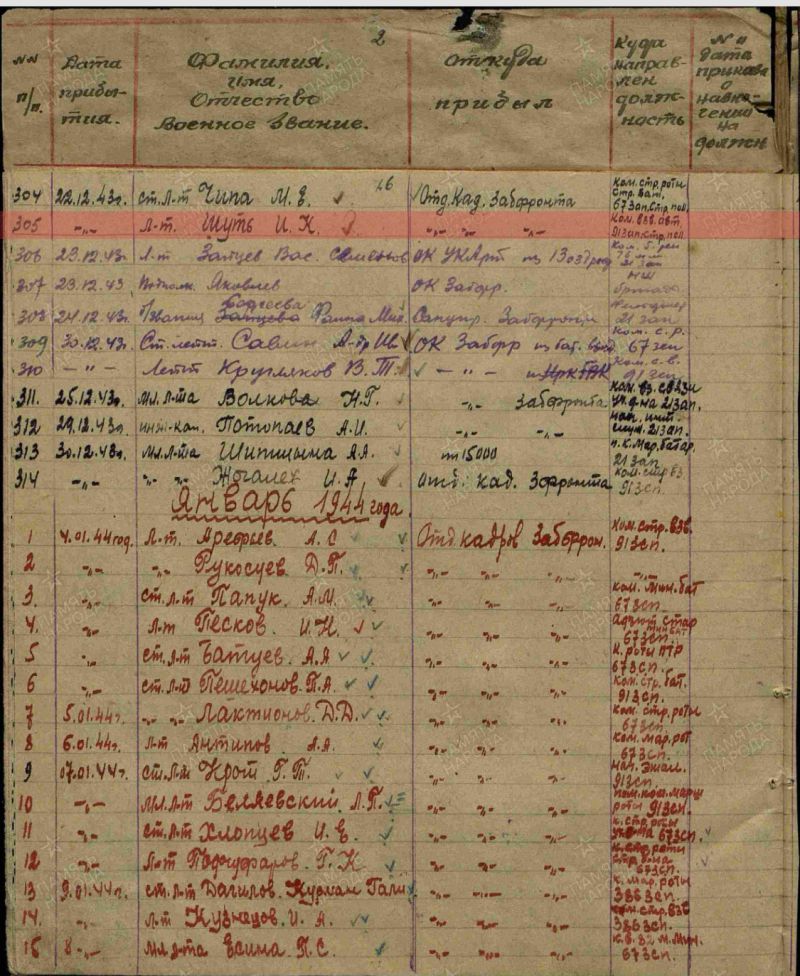 2
№№ п/п.
Дата прибытия.
Фамилия, имя, Отчество Военное звание.
Откуда прибыл
Куда направлен должность
№ и дата приказа о назначении на должн
304 22.12.43г. ст.л-т Чипа М. Е. Отд. Кад. Забфронта Ком. стр. роты Стр. бат. 673ап. стр. пол.
305 -„- л-т. Шуть И. К. -„- -„- -„- Ком. взв. авт. 913ап. стр. пол.
306 23.12.43г. Л-т Зайцев Вас. Семенов ОК УК Арт из 213ап
307 23.12.43 Подполк. Яковлев ОК Забфр. НШ бригады
308 24.12.43г. Зайцева Фаина Мих. Санупр. Забфронта 213ап
309 30.12.43г. Ст. лейт. Савин А-др Ив ОК Забфр из бат. Ком. с. р. 673сп
310 -„- Лейт Кругляков В. Т. -„- -„- Ком. с. в. 913сп
311. 25.12.43г. мл. л-та Волкова Н. Г. -„- Забфронта Ком. вз. связи 213ап.
312 29.12.43г. инж-кап. Потопаев А. И. -„- -„- 213ап.
313 30.12.43г. мл. л-та Шипицына А. А. пп 15000 213ап
314 -„- -„- -„- И. А Отд. кад. Зфронта Ком. стр вз 913сп.
Январь 1944 года.
1 4.01.44год. Л-т. Арефьев. А. С Отд. кадров Забфрон. Ком. стр. взв. 913сп.
2 -„- -„- Рукосуев Д. П. -„- -„- -„- -„-
3. -„- ст. л-т Папук. А. М. -„- -„- -„- Ком. мин. бат 673сп.
4. -„- л-т Песков. И. Н. -„- -„- -„- Адъют стар минбат 673сп.
5 -„- ст. л-т Батуев. А. Я -„- -„- -„- К. роты ПТР 673сп.
6 -„- ст. л-т Пешехонов. П. А. -„- -„- -„- Ком. стр. бат. 913сп.
7 5.01.44г. -„- -„- Лактионов. Д. Д. -„- -„- -„- Ком. стр. роты 673сп
8 6.01.44г. л-т Антипов А. А. -„- -„- -„- Ком. мар. рот 673сп.
9 07.01.44г. ст. л-т Крот Г. Т. -„- -„- -„- 913сп.
10 -„- мл. л-т Беляевский Л. П. -„- -„- -„- пом. ком. марш роты 913сп.
11 -„- ст. л-т Хлопцев И. Е. -„- -„- -„- к. стр. роты 673сп.
12 -„- л-т Г. К -„- -„- -„- к. стр. роты 673сп
13 9.01.44г. ст. л-т Курман Гали -„- -„- -„- к. мар. роты 3863сп.
14. -„- л-т Кузнецов. И. А. -„- -„- -„- ком. стр. взв 3863сп.
15 8 -„- мл л-та Есина П. С. -„- -„- -„- к. в. 82 м. мин. 673сп.